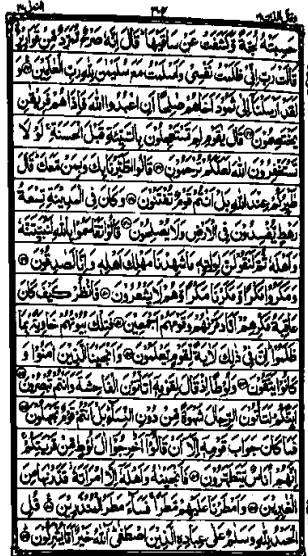 حسبته لجة وكشفت عن ساقيها قال إنه صرح ممرد من قوارير
قالت رب إني ظلمت نفسي وأسلمت مع سليمن لله رب العلمين
ولقد أرسلنا إلى ثمود أخاهم صلحا أن اعبدوا الله فإذا هم فريقن
يختصمون قال يقوم لم تستعجلون بالسيئة قبل الحسنة لو لا
تستغفرون الله لعلكم ترحمون قالوا اطيرنا بك وبمن معك قال
طئركم عند الله بل أنتم قوم تفتنون وكان في المدينة تسعة
رهط يفسدون في الأرض ولا يصلحون قالوا تقاسموا بالله لنبيتنه
وأهله ثم لنقولن لوليه ما شهدنا مهلك أهله وإنا لصدقون
ومكروا مكرا ومكرنا مكرا وهم لا يشعرون فانظر كيف كان
عاقبة مكرهم أنا دمرنهم وقومهم أجمعين فتلك بيوتهم خاوية بما
ظلموا إن في ذلك لآية لقوم يعلمون وأنجينا الذين آمنوا و
كانوا يتقون ولوطا إذ قال لقومه أتأتون الفاحشة وأنتم تبصرون
أئنكم لتأتون الرجال شهوة من دون النساء بل أنتم قوم تجهلون
فما كان جواب قومه إلا أن قالوا أخرجوا آل لوط من قريتكم
إنهم أناس يتطهرون فأنجينه وأهله إلا امرأته قدرنها من
الغبرين وأمطرنا عليهم مطرا فساء مطر المنذرين قل
الحمد لله وسلم على عباده الذين اصطفى آلله خير أما يشركون